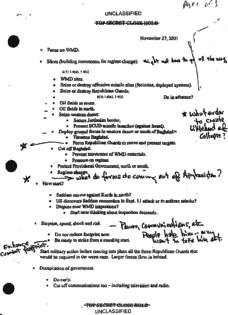 UNCLASSIFIED
TOP SECRET CLOSE HOLD
November 27, 2001
• Focus on WMD.
• Slices (building momentum for regime change):
might not have to go all the way
• WMD sites.
• Seize or destroy offensive missile sites (factories, deployed systems).
• Seize or destroy Republican Guards.
Do in advance?
• Oil fields in south.
• Oil fields in north.
• Seize western desert:
• Secure Jordanian border.
• Prevent SCUD missile launches (against Israel).
• Deploy ground forces to western desert or south of Baghdad:
• Threaten Baghdad.
• Force Republican Guards to move and present targets
* What order to create likelihood of collapse?
• Cut off Baghdad.
• Prevent movement of WMD materials.
• Pressure on regime
• Protect Provisional Government, north or south.
• Regime change
what do forces do coming out of Afghanistan?
• How start?
• Saddam moves against Kurds in north?
• US discovers Saddam connection to Sept. 11 attack or to anthrax attacks?
• Dispute over WMD inspections?
• Start now thinking about inspection demands.
• Surprise, speed, shock and risk
Power, communications, etc.
• Do not reduce footprint now.
• Be ready to strike from a standing start.
People hate him — may want to take him out.
Enhance combat footprint.
Start military action before moving into place all the force
would be required in the worst case. Larger forces flow in behind.
• Decapitation of government
• Do early.
• Cut off communications too – including television and radio.
TOP SECRET CLOSE HOLD
UNCLASSIFIED